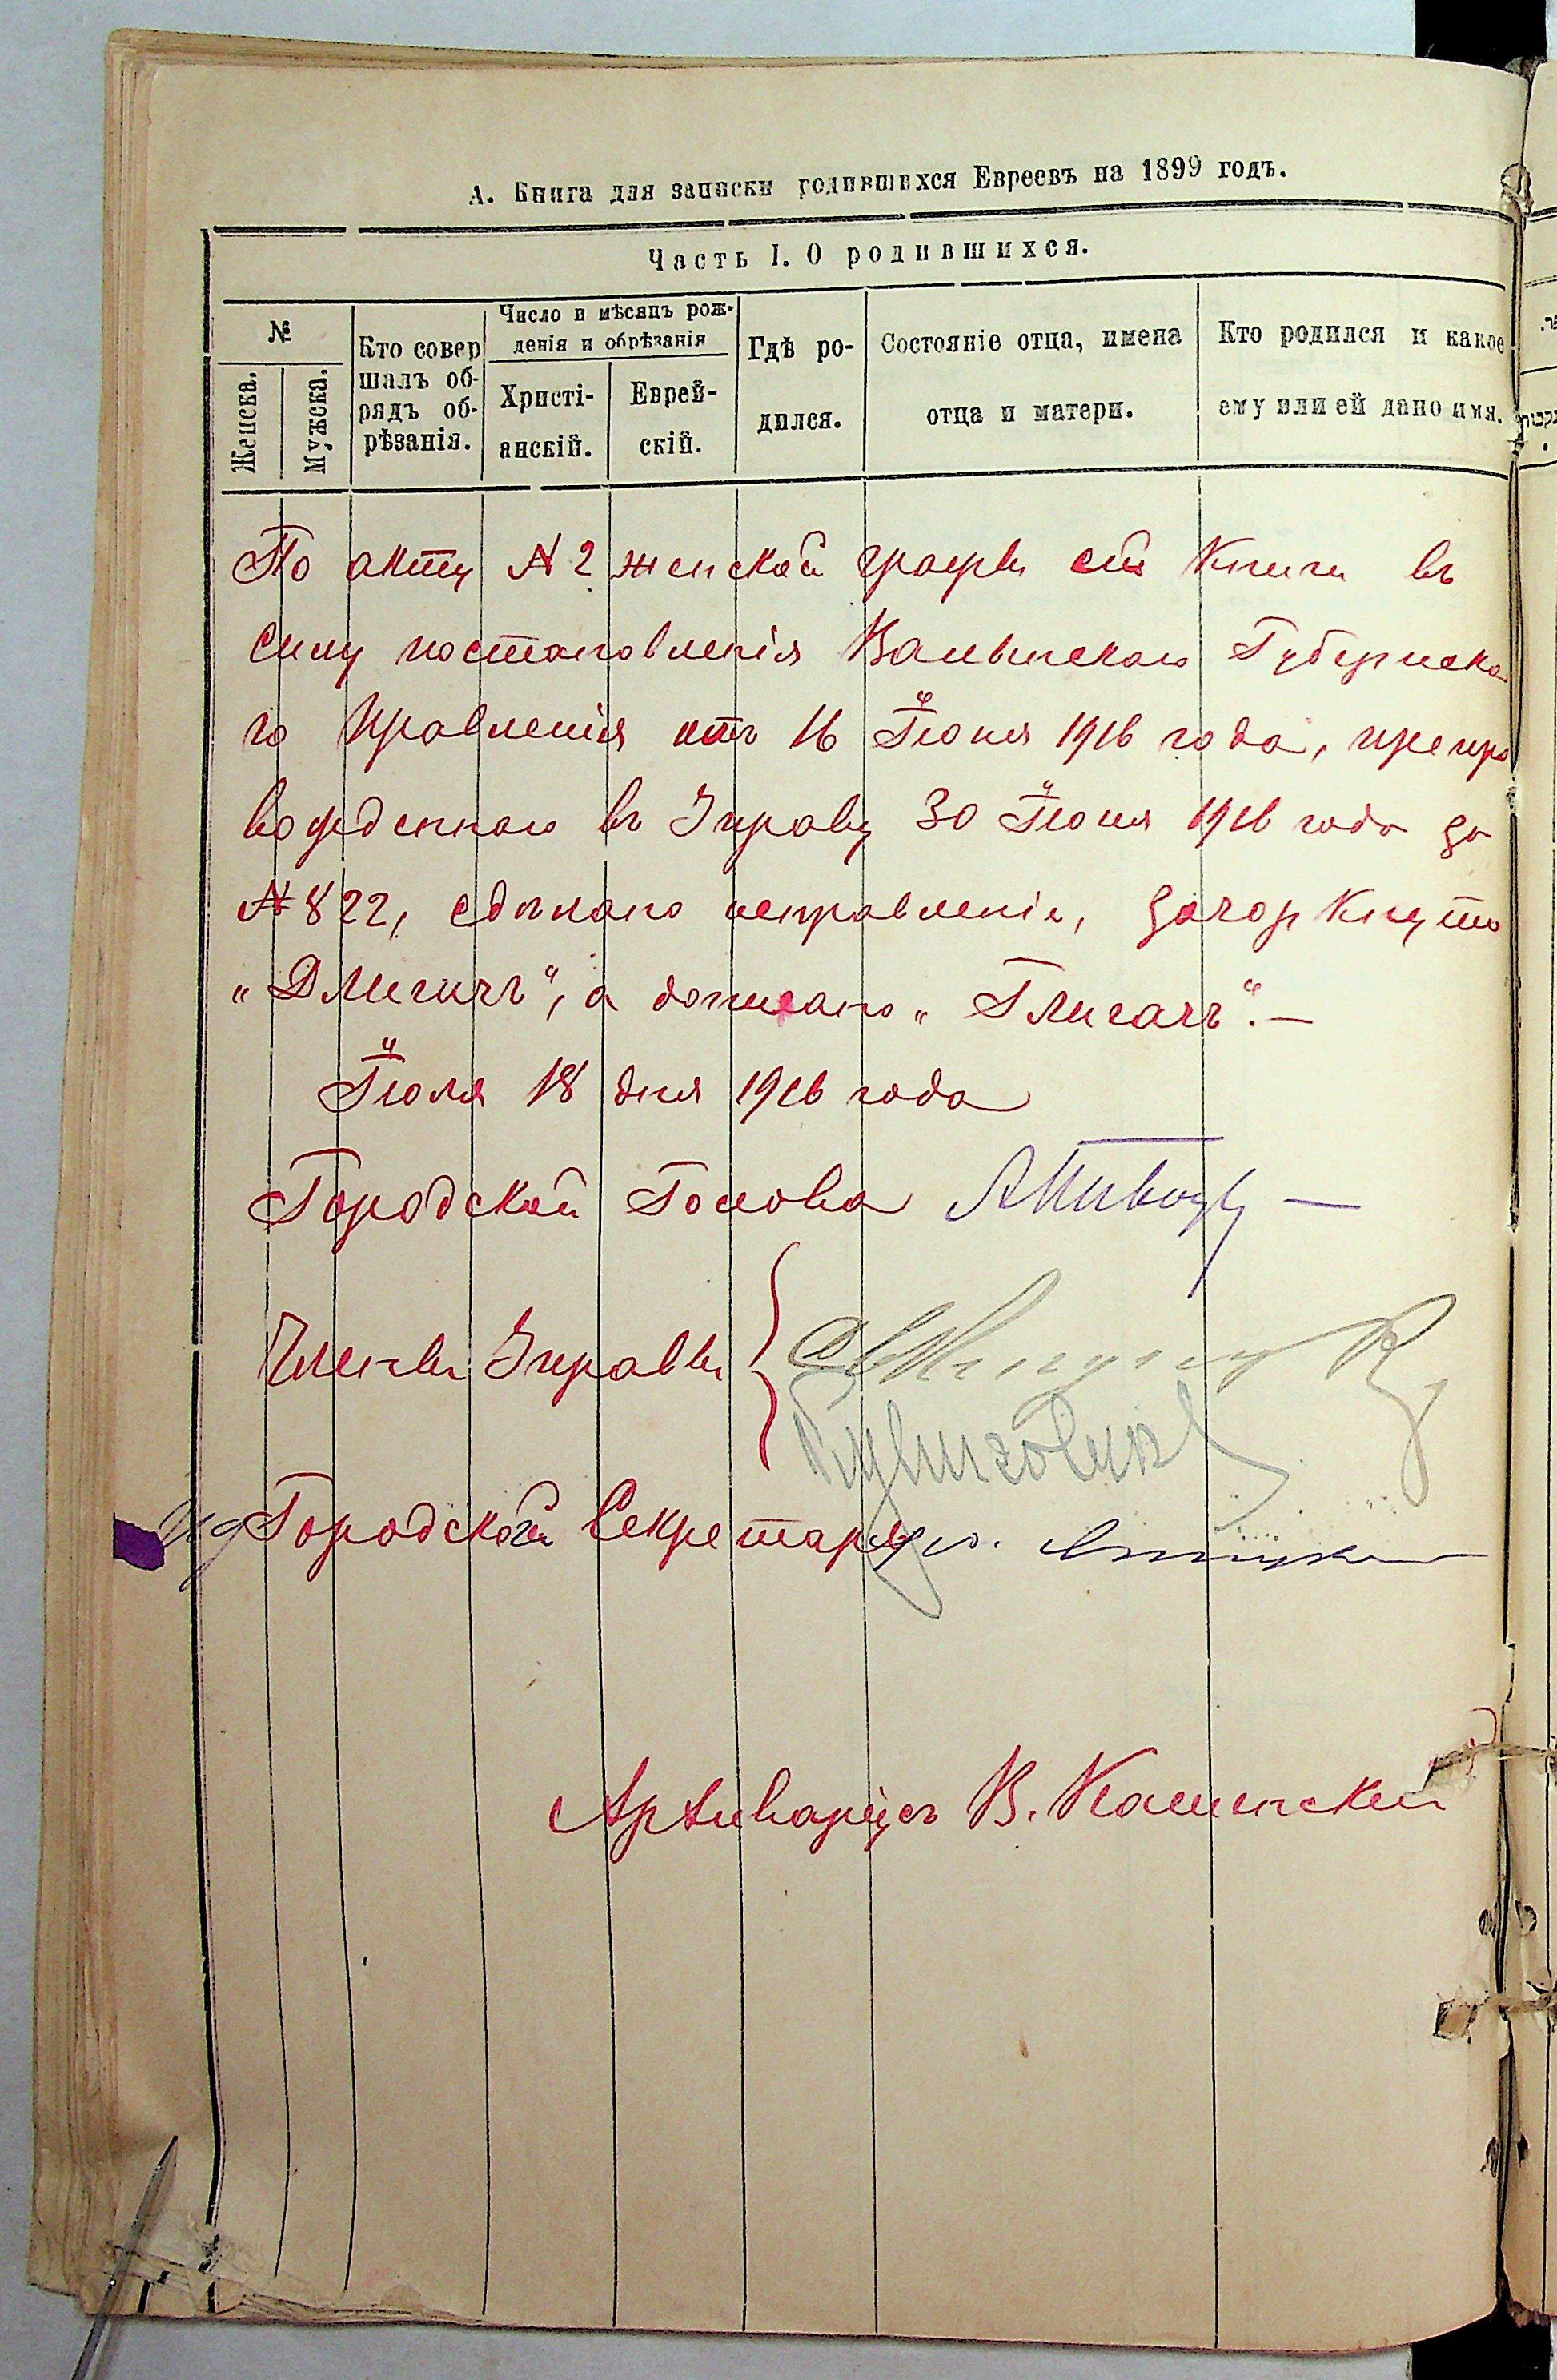 А. Книга для записки родившихся Евреевъ на 1899 годъ.
Часть I. О родившихся.
№
Женска.
Мужска.
Кто совер
шалъ об-
рядъ об-
рѣзанія.
Число и мѣсяцъ рож-
денія и обрѣзанія
Христі-
анскій.
Еврей-
скій.
Гдѣ ро-
дился.
Состояніе отца, имена
отца и матери.
Кто родился и какое
ему или ей дано имя.
По акту № 2 женской графы сей Книги въ
силу постановленія Волынскаго Губернска
го Правленія отъ 16 Іюня 1916 года, препро
вожденнаго въ Управу 30 Іюня 1916 года за
№ 822, сдѣлано исправленіе, зачеркнуто
„Длигичъ“, а дописано „Глигачъ“.—
Іюля 18 дня 1916 года
Городской Голова
Члены Управы
ИД Городской Секретарь
Архиваріусъ В. Каменскій